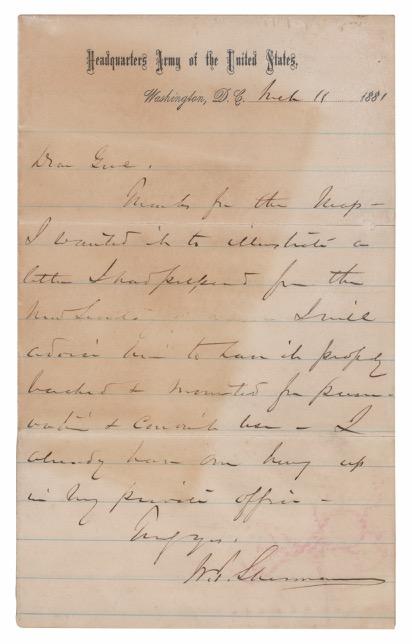 Headquarters Army of the United States,
Washington, D.C. Mch 11 1881
Dear
Thanks for the Map -
I wanted it to illustrate a
letter I had prepared for the
New I will
advise him to have it properly
backed & mounted for preser-
vation & use - I
already have one hung up
in my private office -
Truly yrs,
W.T. Sherman